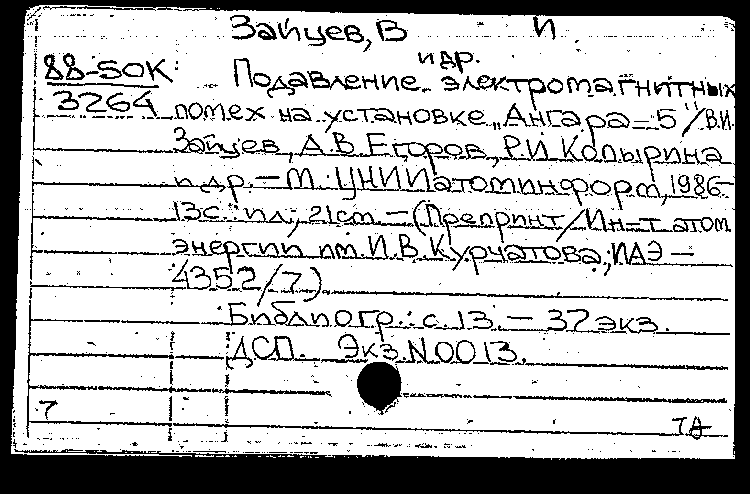 Зайцев, В И
и др.
88-50К
3264
Подавление электромагнитных
помех на установке „Ангара-5"/В.И.
Зайцев, А.В. Егоров, Р.И. Копырина
и др. - М.: ЦНИИатоминформ, 1986.-
13с.: ил.; 21см. - (Препринт/Ин-т атом
энергии им. И.В. Курчатова; ИАЭ -
4352/7)
Библиогр.: с. 13. - 37 экз.
ДСП. Экз. N 0013.
7